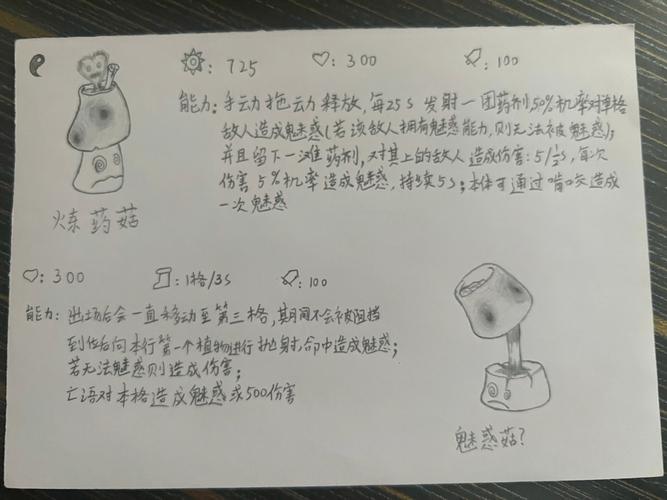 : 725
: 300
: 100
能力: 手动拖动释放,每25s发射一团药剂,50%机率对单格
敌人造成魅惑(若该敌人拥有魅惑能力,则无法被魅惑);
并且留下一滩药剂,对其上的敌人造成伤害:5/½s,每次
伤害5%机率造成魅惑,持续5s;本体可通过啃咬造成
一次魅惑
炼药菇
: 300
: 1格/3s
: 100
能力: 出场后会一直移动至第三格,其间不会被阻挡
到位后向本行第一个植物进行抛射,命中造成魅惑;
若无法魅惑则造成伤害;
亡语对本格造成魅惑或500伤害
魅惑菇?